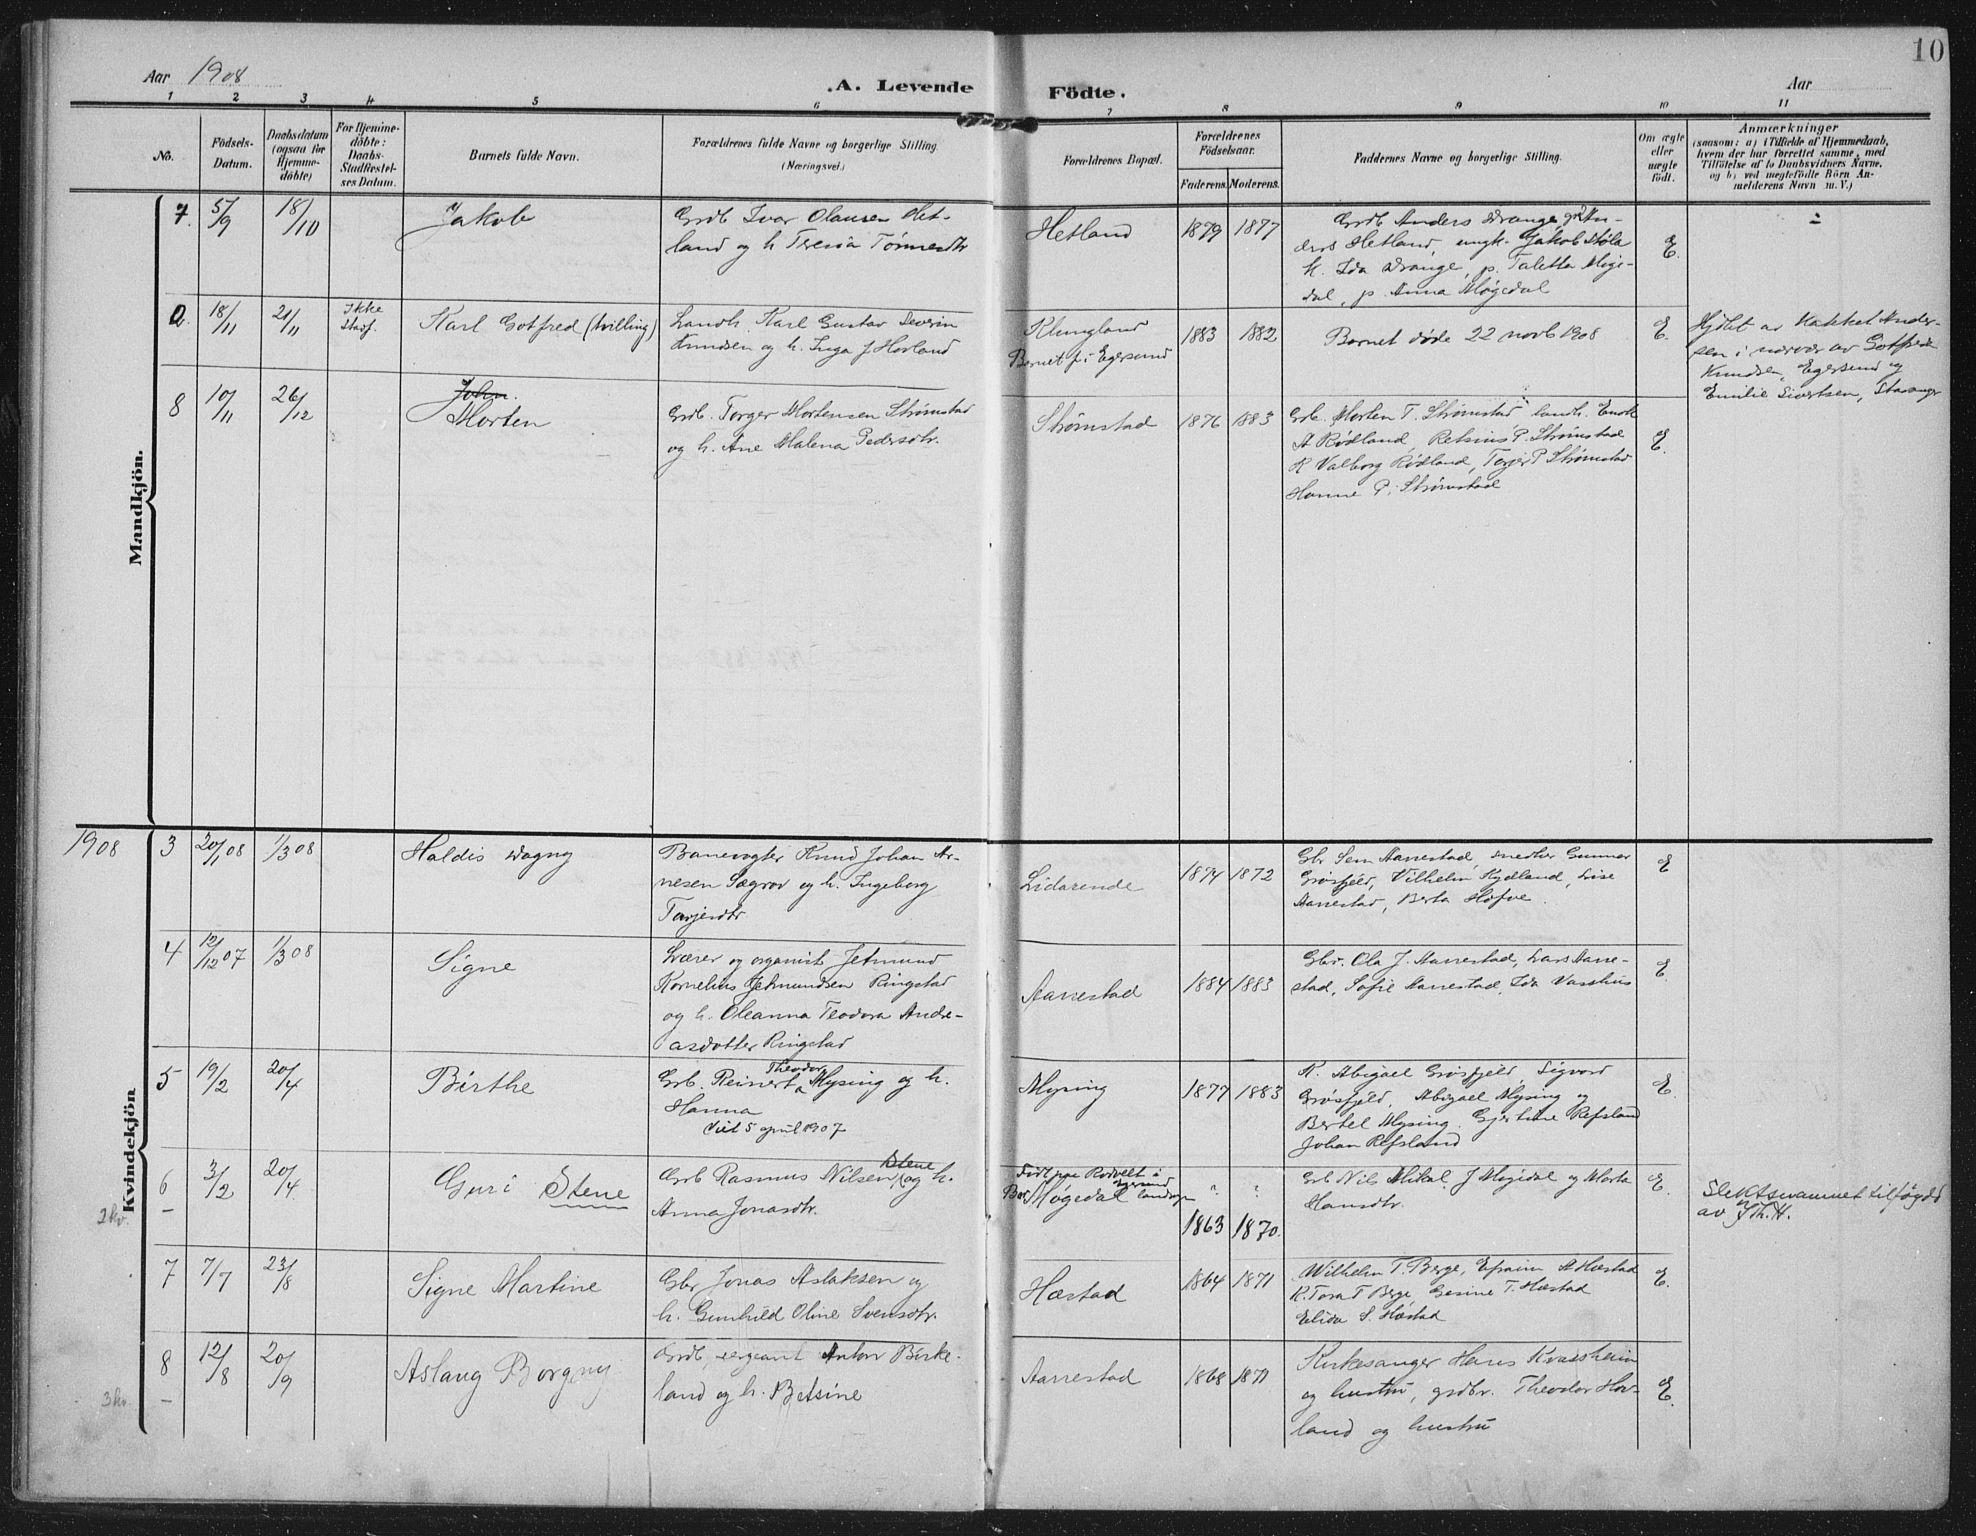 10
Aar 1908
A. Levende Födte.
Aar
1 2 3 4 5 6 7 8 9 10 11
No.
Födsels-
Datum.
Daabsdatum
(ogsaa for
Hjemme-
döbte)
For Hjemme-
döbte:
Daabs-
Stadfæstel-
ses Datum.
Barnets fulde Navn.
Forældrenes fulde Navne og borgerlige Stilling
(Næringsvei.)
Forældrenes Bopæl.
Forældrenes
Födselsaar.
Faderens. Moderens.
Faddernes Navne og borgerlige Stilling.
Om ægte
eller
uægte
födt.
Anmærkninger
(saasom: a) i Tilfælde af Hjemmedaab,
hvem der har forrettet samme, med
Tilföielse af to Daabsvidners Navne,
og b) ved uegtefödte Börn An-
melderens Navn m. V.)
Mandkjön.
7. 5/9 18/10 Jakob
Grdb Ivar Olausen Het-
land og h. Teresia Tönnesdtr
Hetland 1879 1877
Grdb Anders Drange, An-
ders Hetland, ungk. Jakob Støla
K. Ida Drange, p. Taletta Møge-
dal, p. Anna Møgedal
E.
÷
Q. 18/11 21/11 Ikke
Stadf.
Karl Gotfred (tvilling)
Landh. Karl Gustav Severin
Knudsen og h. Inga J Hovland
Klungland
Barnet f. i Egersund
1883 1882
Barnet døde 22 novb 1908
E.
Hjdbt av Andor-
sen i nærvær av Gotfred
Knudsen, Egersund og
Emilie Sivertsen, Stavanger
8 10/11 26/12 John.
Morten
Grdb. Torger Mortensen Strømstad
og h. Ane Malena Pedersdtr.
Strømstad 1876 1883
Grb. Morten T. Strømstad landh. Enok
A Rødland, Retsius P. Strømstad
K Valborg Rødland, Torger P Strømstad
Hanne P. Strømstad
E.
Kvindekjön
1908 3 20/1 08 1/3 08 Haldis Dagny
Banevogter Knud Johan Ar-
nesen Sægrov og h. Ingeborg
Torjersdtr
Lidarende 1874 1872
Gbr Sem Aarrestad, snedker Gunnar
Grøsfjeld, Vilhelm Rydland, Lise
Aarrestad, Berta
E
4 12/12 07 1/3 08 Signe
Lærer og organist Jetmund
Kornelius Jetmundsen Ringstad
og h. Oleanna Teodora Andre-
asdotter Ringstad
Aarrestad 1884 1883
Gbr. Ola J. Aarrestad, Lars Aarre-
stad, Sofie Aarrestad, Ida Vasshus
E.
5 19/2 20/4 Birthe
Theodor
Grb. Reinert Mysing og h.
Hanna
Viet 5 april 1907
Mysing 1877 1883
K. Abigael Grøsfjeld, Sigvard
Grøsfjeld, Abigael Mysing og
Bertel Mysing. Gjertine Refsland
Johan Refsland
E.
6 3/2 20/4 Guri Stene
2kv. –
Stene
Grb Rasmus Nilsen og h.
Anna Jonasdtr.
Født paa Rodvelt i
Egersund landsogn
Bor Møgedal
" "
1863 1870.
Grb Nils Mikal J Møgedal og Marta
Hansdtr.
E.
Slektsnamnet tilføyd
av J Th. H.
7 7/7 23/8 Signe Martine
Gbr Jonas Aslaksen og
h. Gunhild Oline Svensdtr.
Hæstad 1864 1871
Wilhelm T. Berge, Efraim A Hæstad
K. Tora T Berge, Gesine T. Hæstad
Elida S. Hæstad
E.
8 12/8 20/9 Aslaug Borgny
3kv –
Grdb, sergeant Anton Birke-
land og h. Betsine
Aarrestad 1868 1871
Kirkesanger Hans Kvassheim
og hustru, grdbr. Theodor Hov-
land og hustru
E.